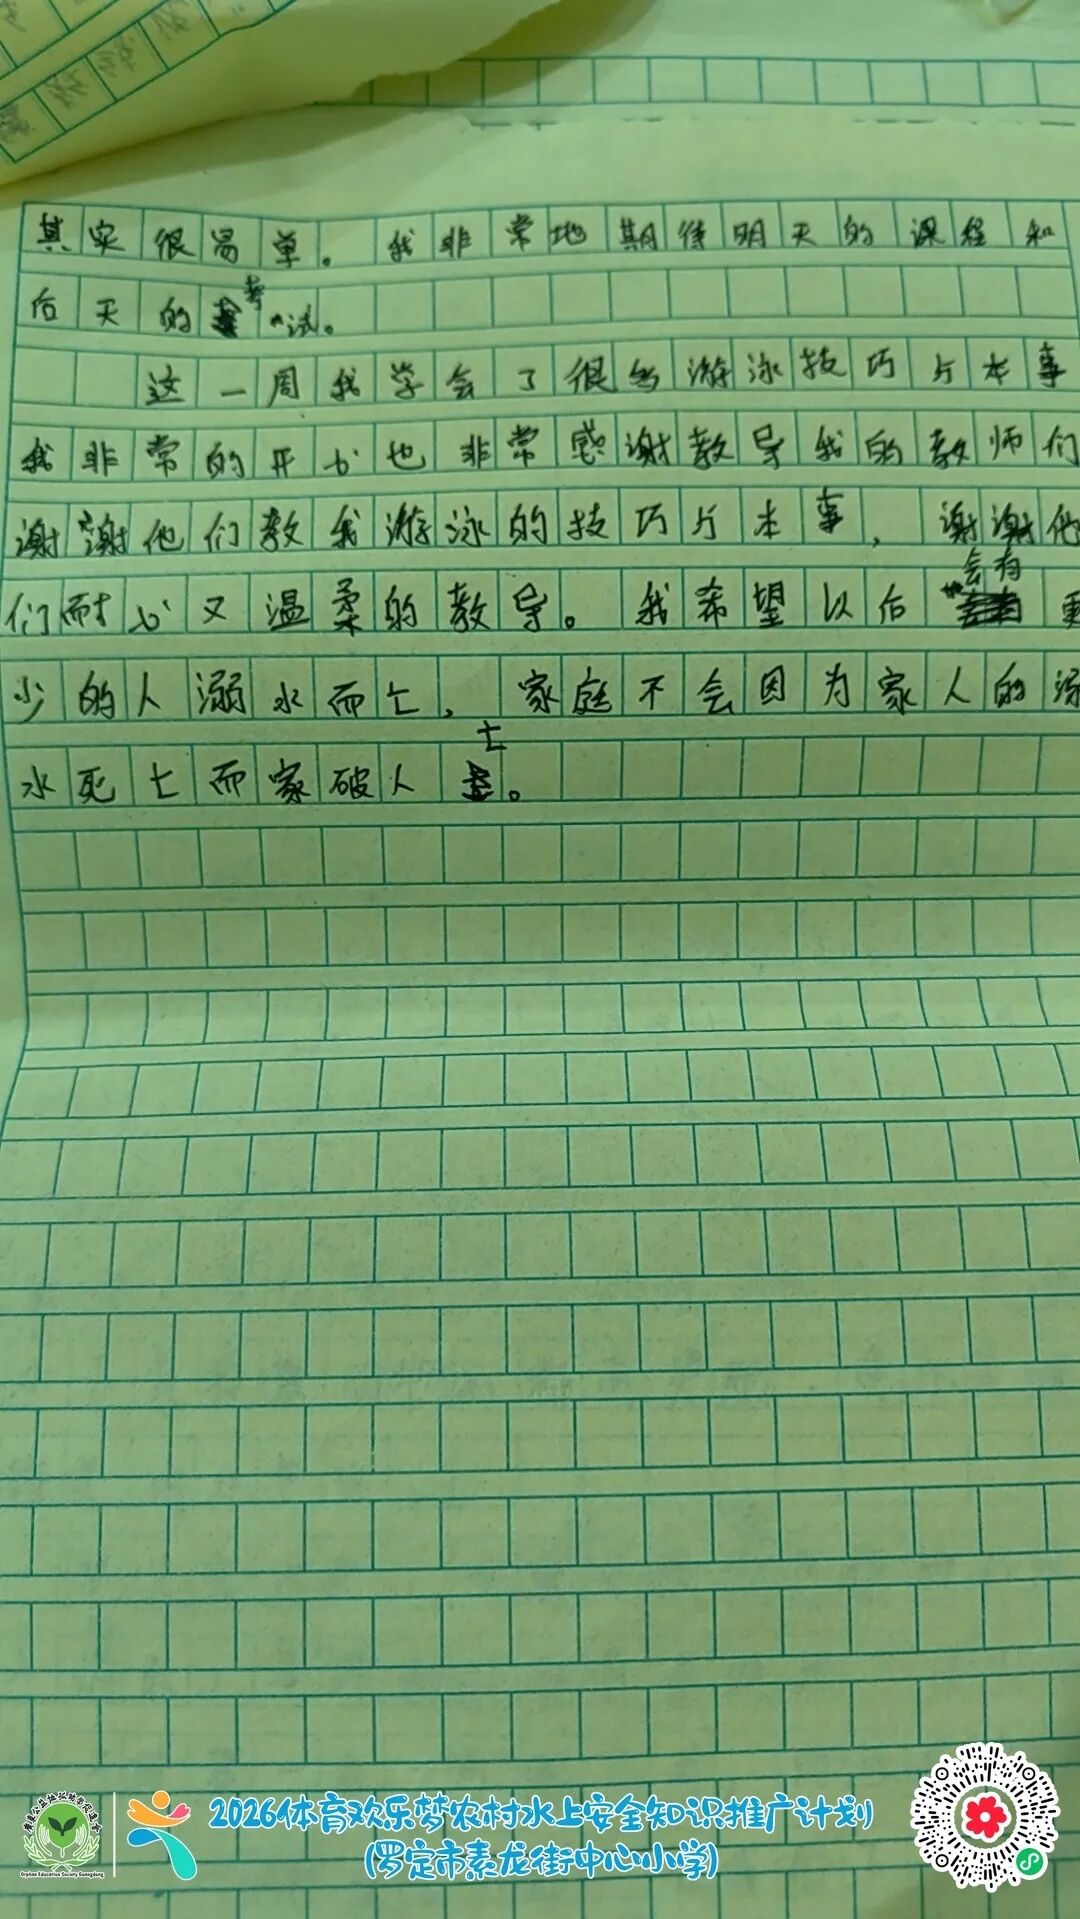 其实很易单。我非常地期待明天的课程和
后天的考试。
这一周我学会了很多游泳技巧与本事
我非常的开心也非常感谢教导我的教师们
谢谢他们教我游泳的技巧与本事，谢谢他
们耐心又温柔的教导。我希望以后会有更
少的人溺水而亡，家庭不会因为家人的溺
水死亡而家破人亡。
2026体育欢乐梦农村水上安全知识推广计划
(罗定市素龙街中心小学)
Orphan Education Society Guangdong